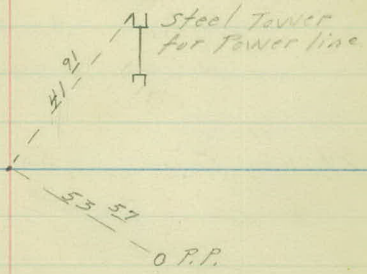 Steel Tower
for Power line
41 91
53 57
O P.P.